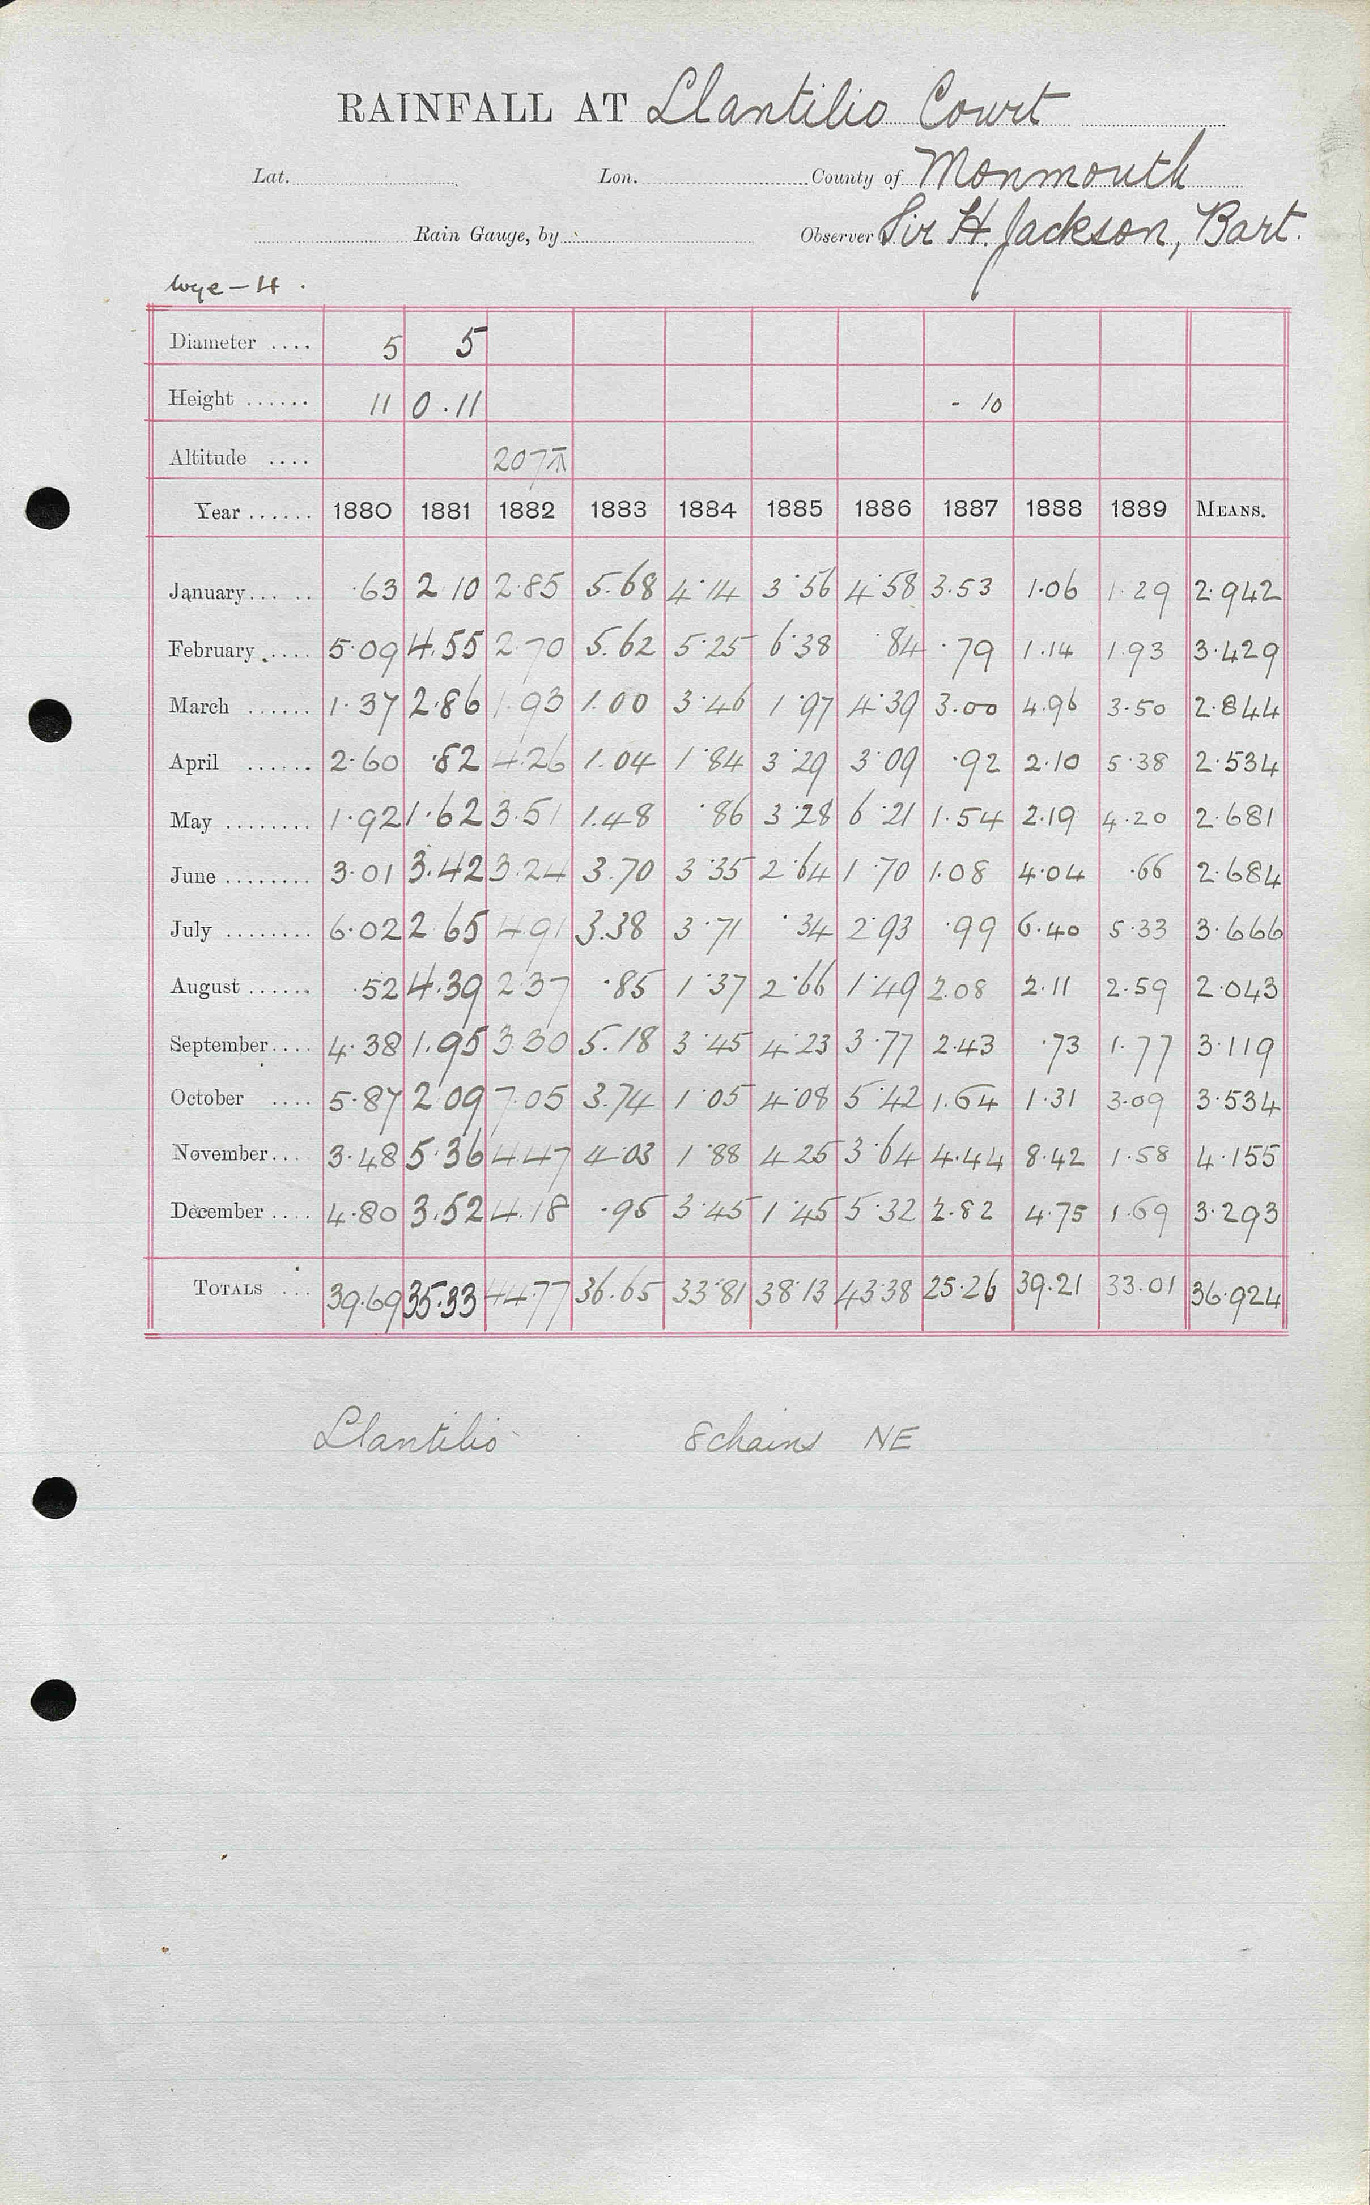 RAINFALL AT Llantilio Court
Lat. Lon. County of Monmouth
Rain Gauge, by Observer Sir H. Jackson, Bart.
Wye - 4 .
Diameter .... 5 5
Height ...... 11 0.11 - 10
Altitude .... 207
Year ...... 1880 1881 1882 1883 1884 1885 1886 1887 1888 1889 MEANS.
January ...... .63 2.10 2.85 5.68 4.14 3.56 4.58 3.53 1.06 1.29 2.942
February .... 5.09 4.55 2.70 5.62 5.25 6.38 .84 .79 1.14 1.93 3.429
March ...... 1.37 2.86 1.93 1.00 3.46 1.97 4.39 3.00 4.96 3.50 2.844
April ...... 2.60 .82 4.26 1.04 1.84 3.29 3.09 .92 2.10 5.38 2.534
May ........ 1.92 1.62 3.51 1.48 .86 3.28 6.21 1.54 2.19 4.20 2.681
June ........ 3.01 3.42 3.24 3.70 3.35 2.64 1.70 1.08 4.04 .66 2.684
July ........ 6.02 2.65 4.91 3.38 3.71 .34 2.93 .99 6.40 5.33 3.666
August ...... .52 4.39 2.37 .85 1.37 2.66 1.49 2.08 2.11 2.59 2.043
September .... 4.38 1.95 3.30 5.18 3.45 4.23 3.77 2.43 .73 1.77 3.119
October .... 5.87 2.09 7.05 3.74 1.05 4.08 5.42 1.64 1.31 3.09 3.534
November ... 3.48 5.36 4.47 4.03 1.88 4.25 3.64 4.44 8.42 1.58 4.155
December .... 4.80 3.52 4.18 .95 3.45 1.45 5.32 2.82 4.75 1.69 3.293
TOTALS ... 39.69 35.33 44.77 36.65 33.81 38.13 43.38 25.26 39.21 33.01 36.924
Llantilio 8 chains NE